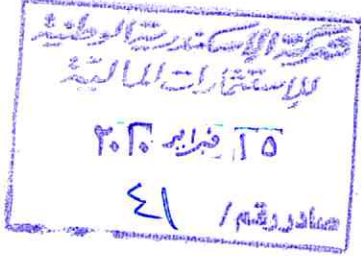 شركة الإسكندرية الوطنية
للإستثمارات المالية
٢٥ فبراير ٢٠٢٠
صادر رقم / ٤١